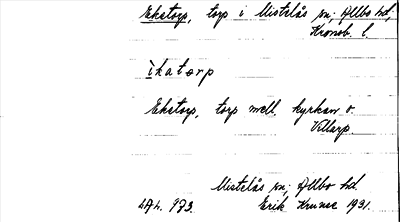 Ekatorp, torp i Mistelås sn, Allbo hd,
Kronob. l.
ìkatorp
Ekatorp, torp mell. kyrkan o.
Mistelås sn, Allbo hd.
Erik Kruuse 1931.